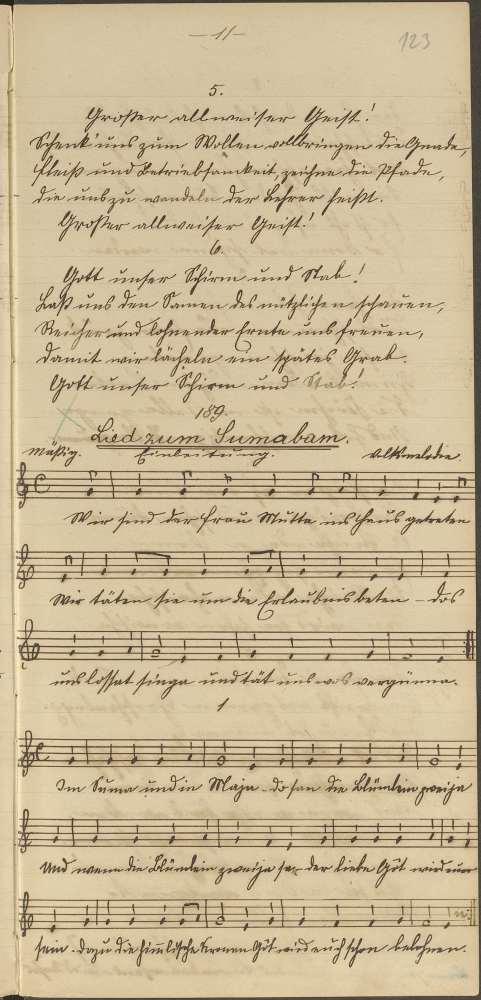 — 11 —
123
5.
Großer allweiser Geist!
Schenk' uns zum Wollen vollbringen die Gnade,
Fleiß und Betriebsamkeit, zeichne die Pfade,
die uns zu wandeln der Lehrer heißt.
Großer allweiser Geist!
6.
Gott unser Schirm und Stab!
Laß uns den Samen des nützlichen schauen,
Reicher und lohnender Ernte uns freuen,
damit wir lächeln ein spätes Grab.
Gott unser Schirm und Stab!
189.
Lied zum Sumabam.
Mäßig. Einleitung. Volksmelodie.
Wir sind der Frau Mutta ins Haus getreten
Wir täten sie um die Erlaubnis beten – dos
uns lossat singa und tät uns wos vergünna.
1
Im Suma und in Maja do san die Blümlein zweija
Und wenn die Blümlein zweija der liebe Gôt wird
sein. dazu die himlische Gôt wird euch schon belohnen.